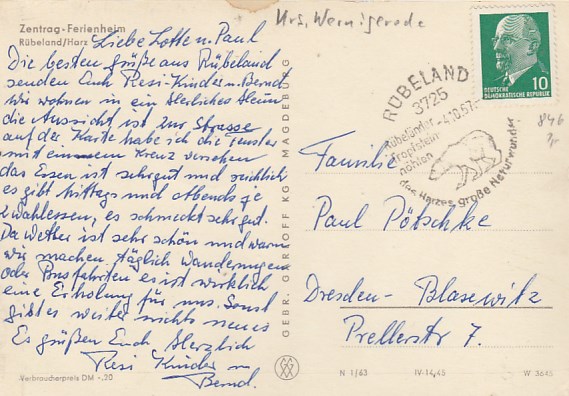 Zentrag-Ferienheim
Rübeland/Harz
Krs. Wernigerode
Liebe Lotte u. Paul
Die besten grüße aus Rübeland
senden Euch Resi-Kinder u. Bernd
wir wohnen in ein Herliches Heim
die Aussicht ist zur Strasse
auf der Karte habe ich die Fenster
mit einem Kreuz versehen
das Essen ist sehr gut und reichlich
es gibt Mittags und Abends je
2 Wahlessen, es schmeckt sehr gut.
Da Wether ist sehr schön und warm
wir machen täglich Wanderungen
oder Busfahrten es ist wirklich
eine Erholung für uns. Sonst
gibt es weiter nichts neues
Es grüßen Euch Herzlich
Resi Kinder u
Bernd.
Verbraucherpreis DM -,20
GEBR. GARLOFF KG MAGDEBURG
RÜBELAND
3725
-4.10.67-
Rübeländer
Tropfstein
höhlen
das Harzes große Naturwunder
10
DEUTSCHE
DEMOKRATISCHE REPUBLIK
846
Familie
Paul Pötschke
Dresden-Blasewitz
Prellerstr 7.
N 1/63 IV-14,45 W 3645